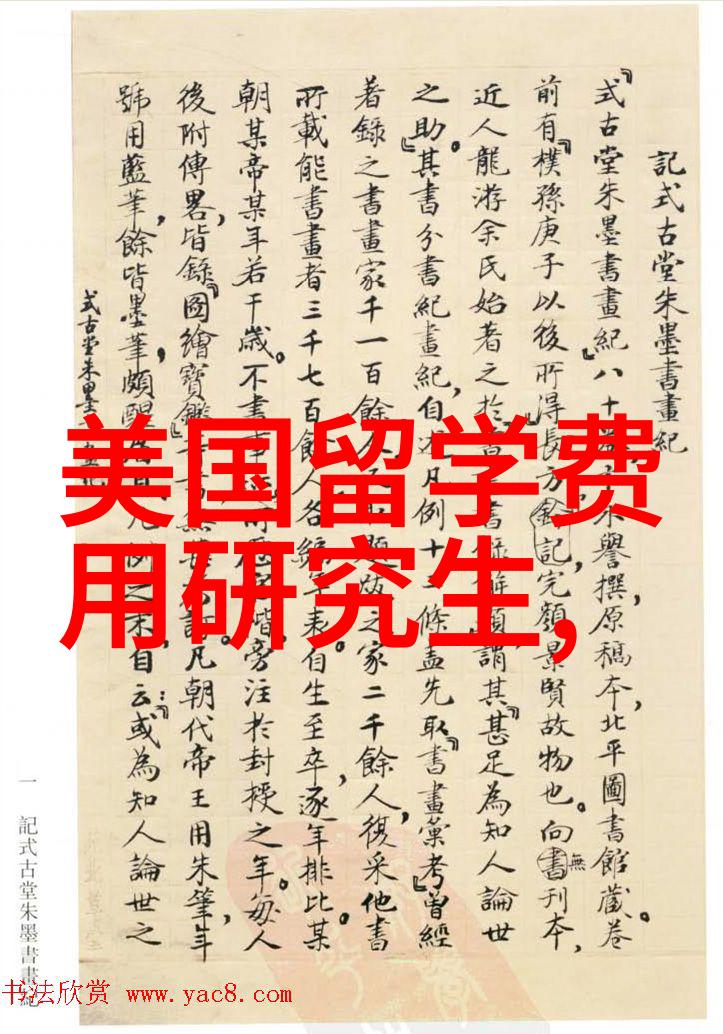 記式古堂朱墨書畫紀
『式古堂朱墨書畫紀』八十譽撰，原稿本，北平圖書館藏。卷
前有『樸孫庚子以後所得』長方印記，完顏景賢故物也。向無書刊本，
近人龍游余氏始著之於謂其『甚足為知人論世
之助。』其書分書紀畫紀，自凡例十二條，蓋先取『書畫彙考』曾經
著錄之書畫家千一百餘題跋之家二千餘人，復采他書
所載能書畫者三千七百餘人，各編年表。自生至卒，逐年排比，某
朝某帝某年若干歲。不書事皆旁注於封授之年。每人
後附傳畧，皆錄『圖繪寶鑑』凡朝代帝王用朱筆，年
號用藍筆，餘皆墨筆，頗醒例之末，自云：『或為知人論世之
式古堂朱墨
一
記式古堂朱墨書畫紀
美国留学费
用研究生,
书法欣赏 www.yac8.com